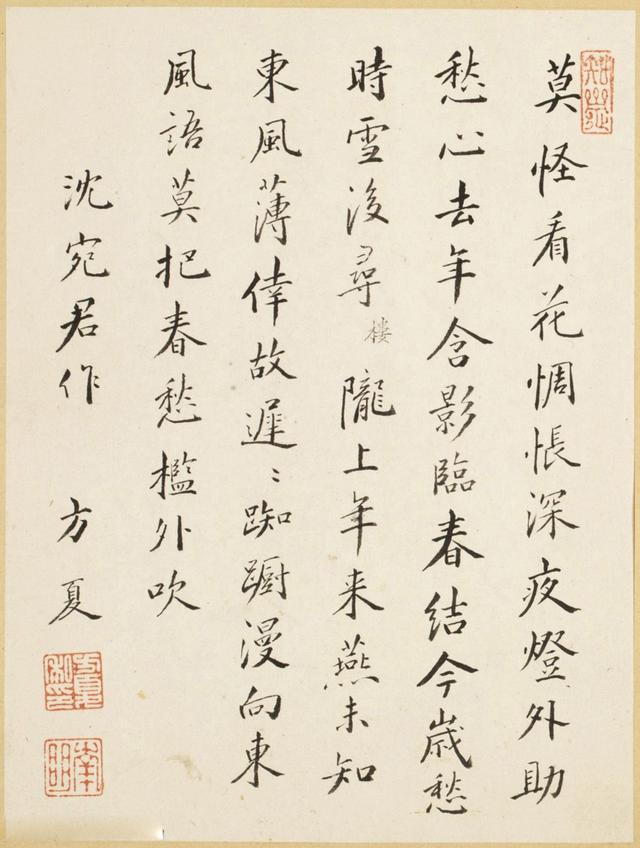 莫怪看花惆悵深疫燈外助
愁心去年含影臨春結今歲愁
時雪後尋樓隴上年来燕未知
東風薄倖故遲〻踟躕漫向東
風語莫把春愁檻外吹
沈宛君作 方夏